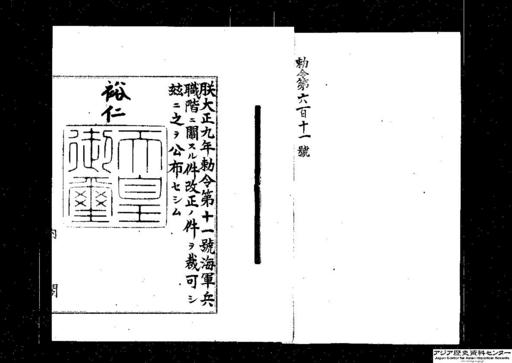 勅令第六百十一號
朕大正九年勅令第十一號海軍兵
職階ニ關スル件改正ノ件ヲ裁可シ
玆ニ之ヲ公布セシム
裕仁
天皇
御璽
内閣
アジア歴史資料センター
Japan Center for Asian Historical Records